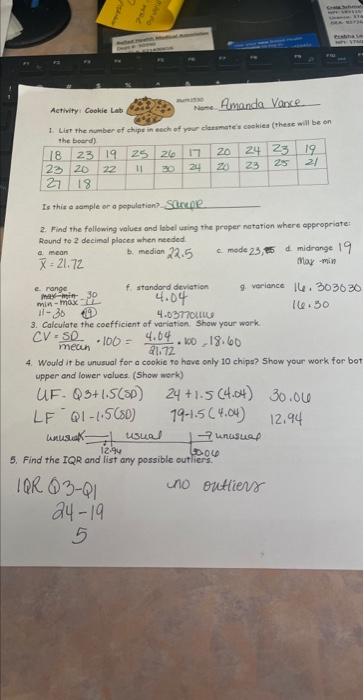 Activity: Cookie Lab
Name Amanda Vance
1. List the number of chips in each of your classmate's cookies (these will be on
the board)
18 23 19 25 26 17 20 24 23 19
23 20 22 11 30 24 20 23 25 21
27 18
Is this a sample or a population? Sample
2. Find the following values and label using the proper notation where appropriate:
Round to 2 decimal places when needed.
a. mean b. median 22.5 c. mode 23, d. midrange 19
x̄ = 21.72 Max-min
e. range f. standard deviation g. variance 16.303030
max-min 30 4.04
min-max 11 16.30
11-30 19 4.0377
3. Calculate the coefficient of variation. Show your work.
CV = SD/mean · 100 = 4.04/21.72 · 100 = 18.60
4. Would it be unusual for a cookie to have only 10 chips? Show your work for bot
upper and lower values. (Show work)
UF- Q3+1.5(SD) 24+1.5(4.04) 30.06
LF- Q1-1.5(SD) 19-1.5(4.04) 12.94
unusual usual unusual
12.94 30.06
5. Find the IQR and list any possible outliers.
IQR Q3-Q1 no outliers
24-19
5